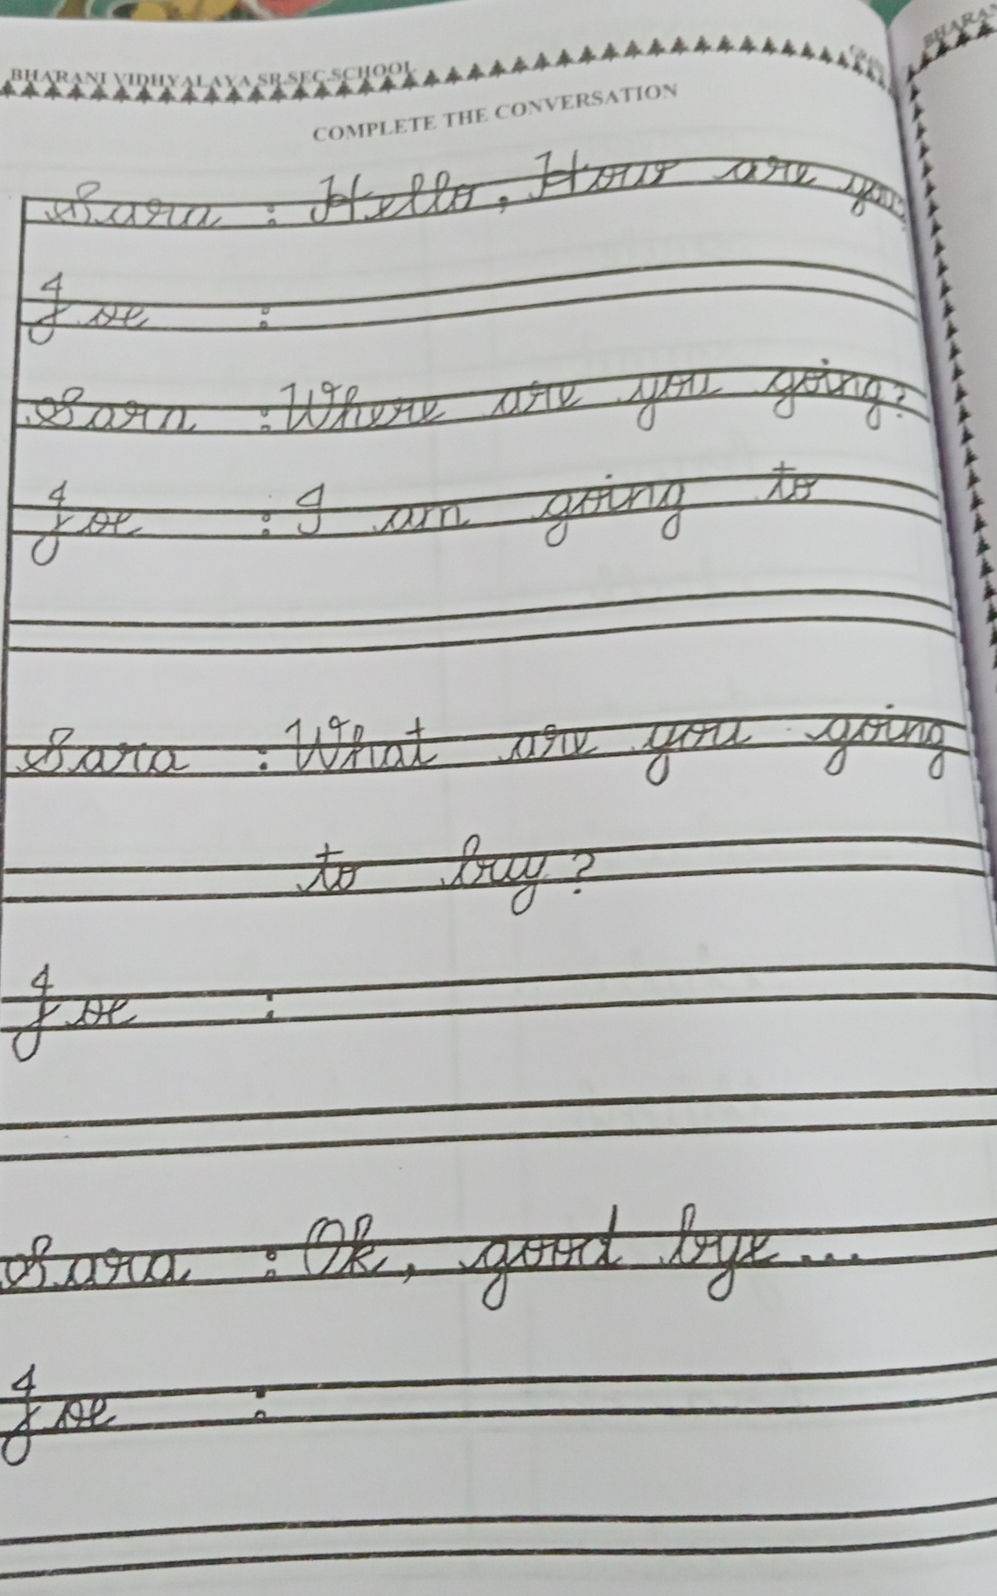 BHARANI VIDHYALAYA SR.SEC.SCHOOL
COMPLETE THE CONVERSATION
Sara : Hello, How are you
Joe :
Sara : Where are you going?
Joe : I am going to
Sara : What are you going
to buy?
Joe :
Sara : Ok, good bye...
Joe :